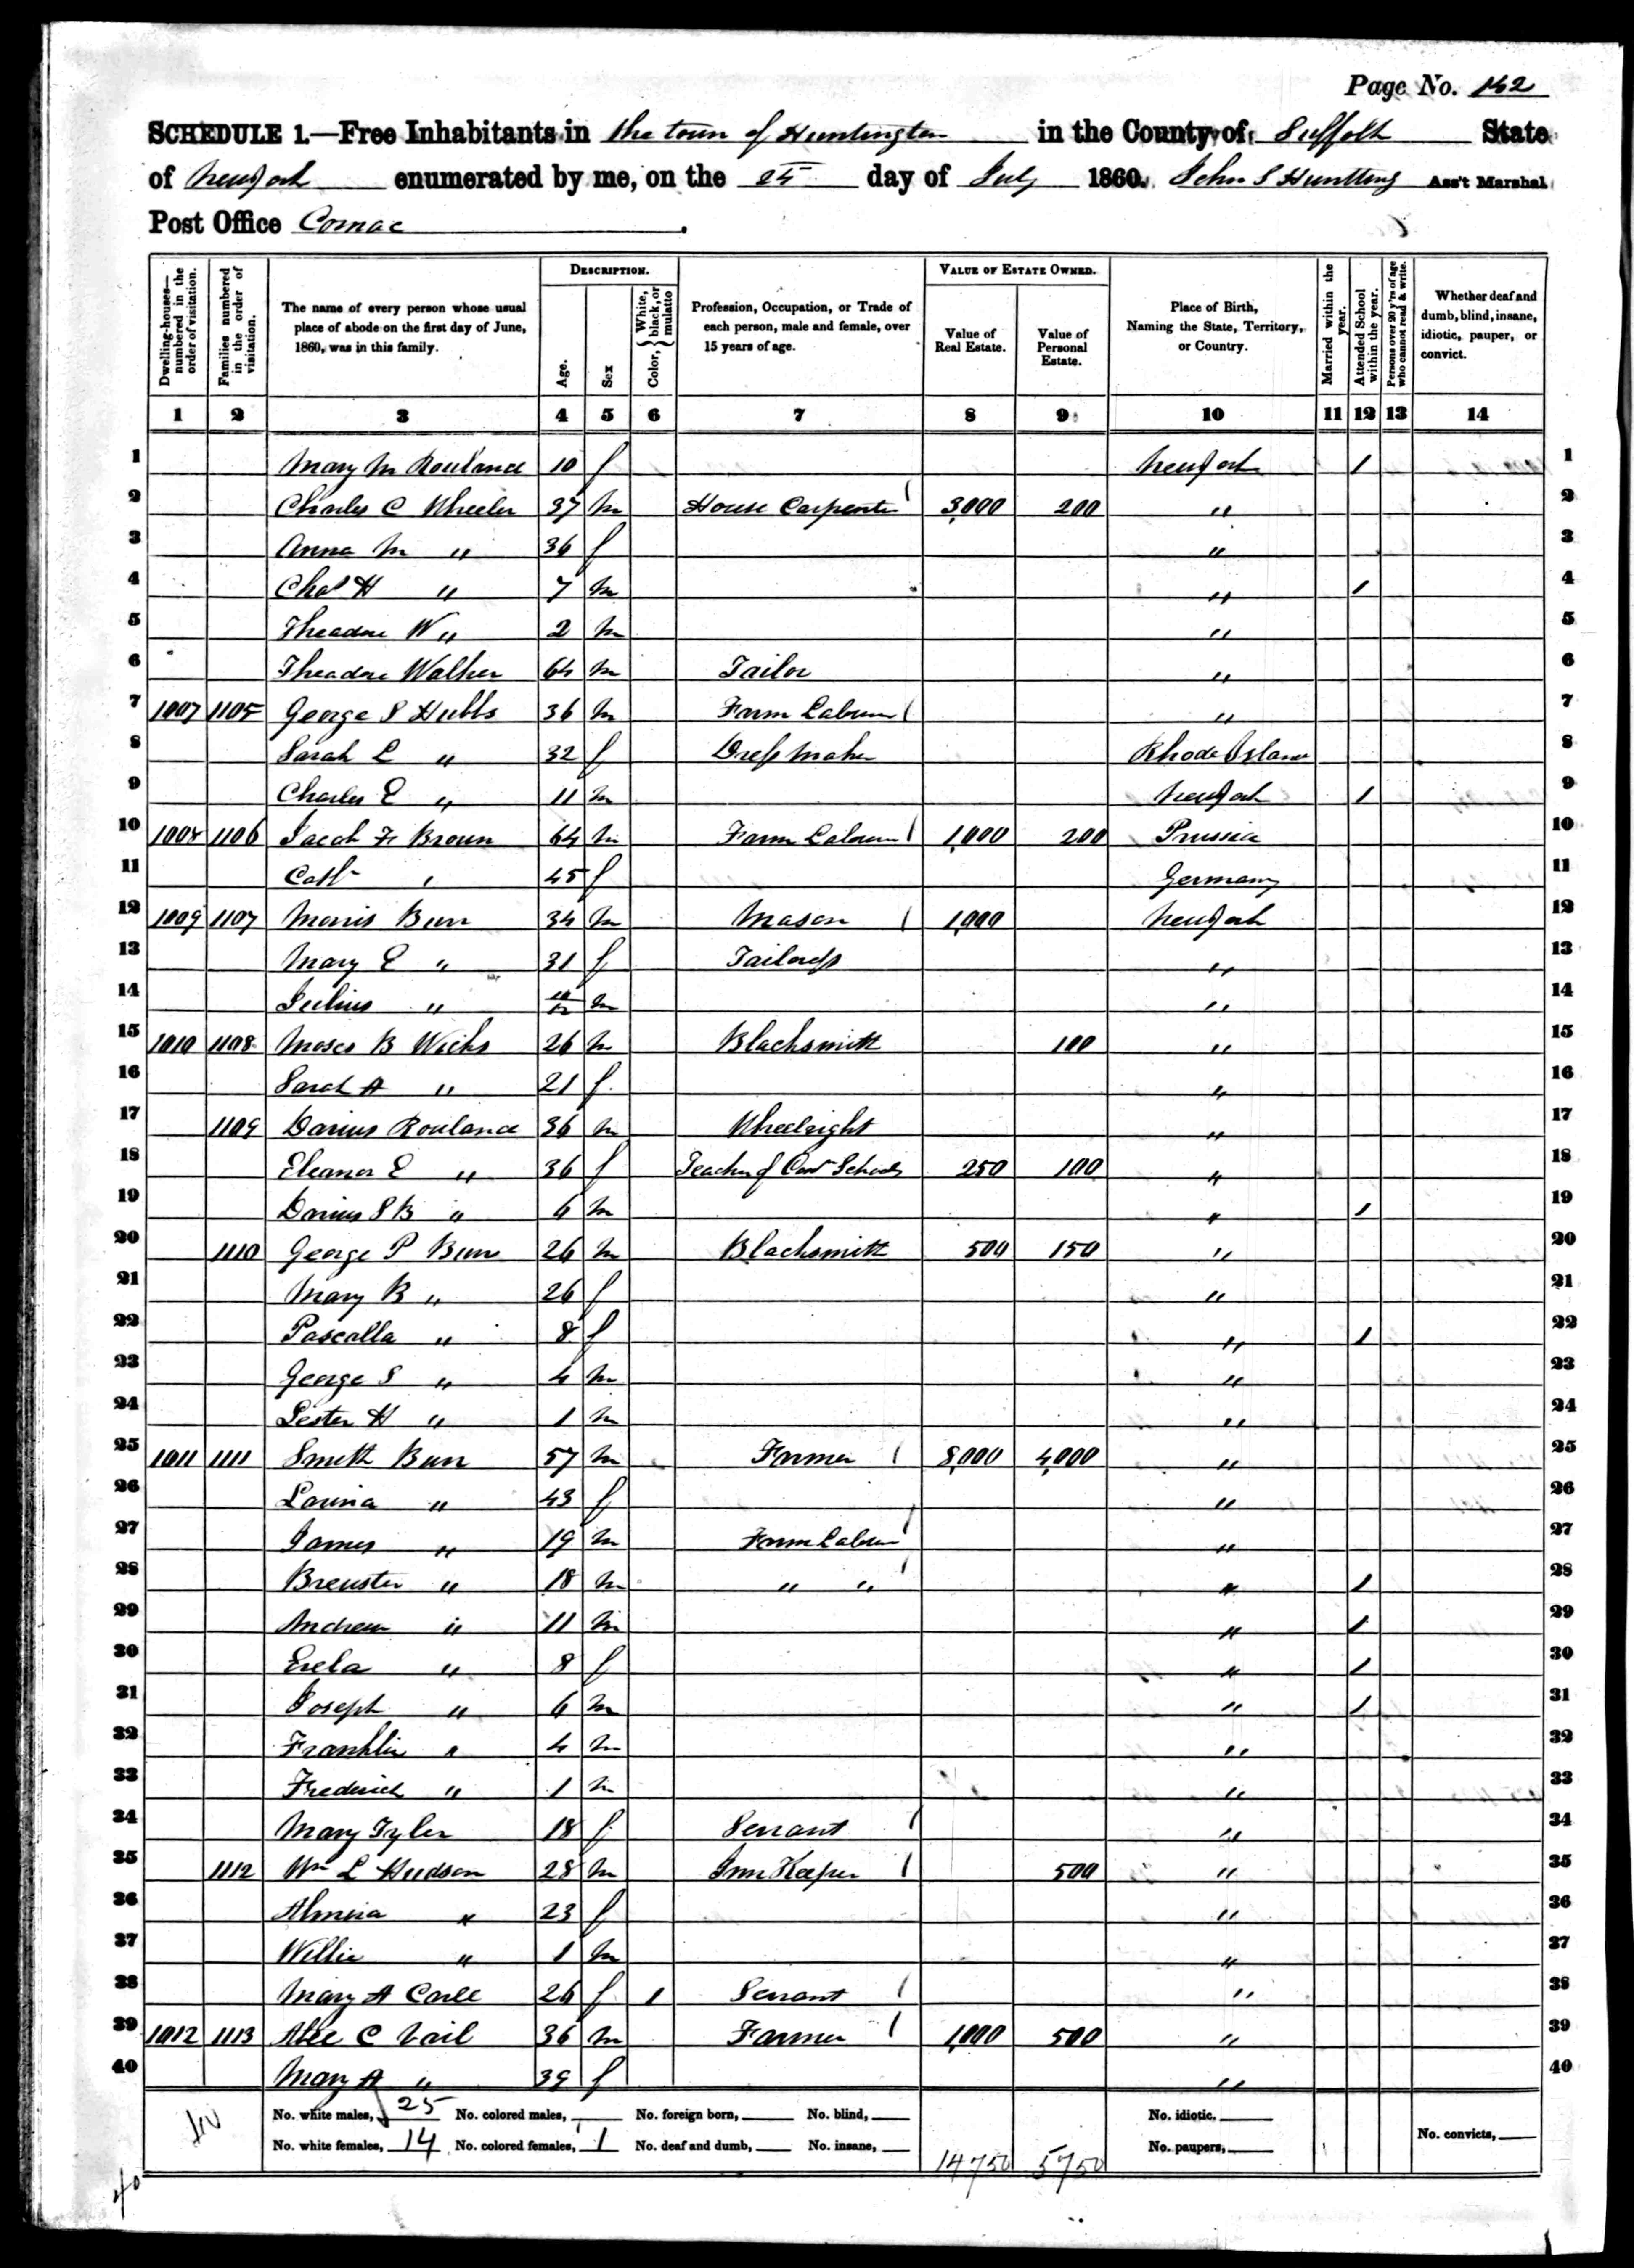 Page No. 142
SCHEDULE 1.—Free Inhabitants in the town of Huntington in the County of Suffolk State
of New York enumerated by me, on the 25 day of July 1860. John S Huntting Ass't Marshal
Post Office Comac
Dwelling-houses—numbered in the order of visitation. Families numbered in the order of visitation. The name of every person whose usual place of abode on the first day of June, 1860, was in this family. DESCRIPTION. Age. Sex Color, { White, black, or mulatto Profession, Occupation, or Trade of each person, male and female, over 15 years of age. VALUE OF ESTATE OWNED. Value of Real Estate. Value of Personal Estate. Place of Birth, Naming the State, Territory, or Country. Married within the year. Attended School within the year. Persons over 20 y'rs of age who cannot read & write. Whether deaf and dumb, blind, insane, idiotic, pauper, or convict.
1 2 3 4 5 6 7 8 9 10 11 12 13 14
1 Mary M Rouland 10 f New York / 1
2 Charles C Wheeler 37 m House Carpenter 3,000 200 " 2
3 Anna M " 36 f " 3
4 Chas H " 7 m " / 4
5 Theadore W " 2 m " 5
6 Theadore Walker 64 m Tailor " 6
7 1007 1105 George S Hubbs 36 m Farm Laborer " 7
8 Sarah L " 32 f Dress Maker Rhode Island 8
9 Charles E " 11 m New York / 9
10 1008 1106 Jacob F Brown 64 m Farm Laborer 1,000 200 Prussia 10
11 Cath " 45 f Germany 11
12 1009 1107 Morris Burr 34 m Mason 1,000 New York 12
13 Mary E " 31 f Tailoress " 13
14 Julius " m " 14
15 1010 1108 Moses B Wicks 26 m Blacksmith 100 " 15
16 Sarah A " 21 f " 16
17 1109 Darius Rouland 36 m Wheelright " 17
18 Eleanor E " 36 f Teacher of Com Schools 250 100 " 18
19 Darius S B " 6 m " / 19
20 1110 George P Burr 26 m Blacksmith 500 150 " 20
21 Mary B " 26 f " 21
22 Pascalla " 8 f " / 22
23 George S " 4 m " 23
24 Lester H " 1 m " 24
25 1011 1111 Smith Burr 57 m Farmer 8,000 4,000 " 25
26 Lavina " 43 f " 26
27 James " 19 m Farm Laborer " 27
28 Brewster " 18 m " " " / 28
29 Andrew " 11 m " / 29
30 " 8 f " / 30
31 Joseph " 6 m " / 31
32 Franklin " 4 m " 32
33 Frederick " 1 m " 33
34 Mary Tyler 18 f Servant " 34
35 1112 Wm L Hudson 28 m Inn Keeper 500 " 35
36 Almira " 23 f " 36
37 Willie " 1 m " 37
38 Mary A Carll 26 f 1 Servant " 38
39 1012 1113 C Vail 36 m Farmer 1,000 500 " 39
40 Mary A " 39 f " 40
No. white males, 25 No. colored males, No. foreign born, No. blind, No. idiotic,
No. white females, 14 No. colored females, 1 No. deaf and dumb, No. insane, 14750 5750 No. paupers, No. convicts,
40